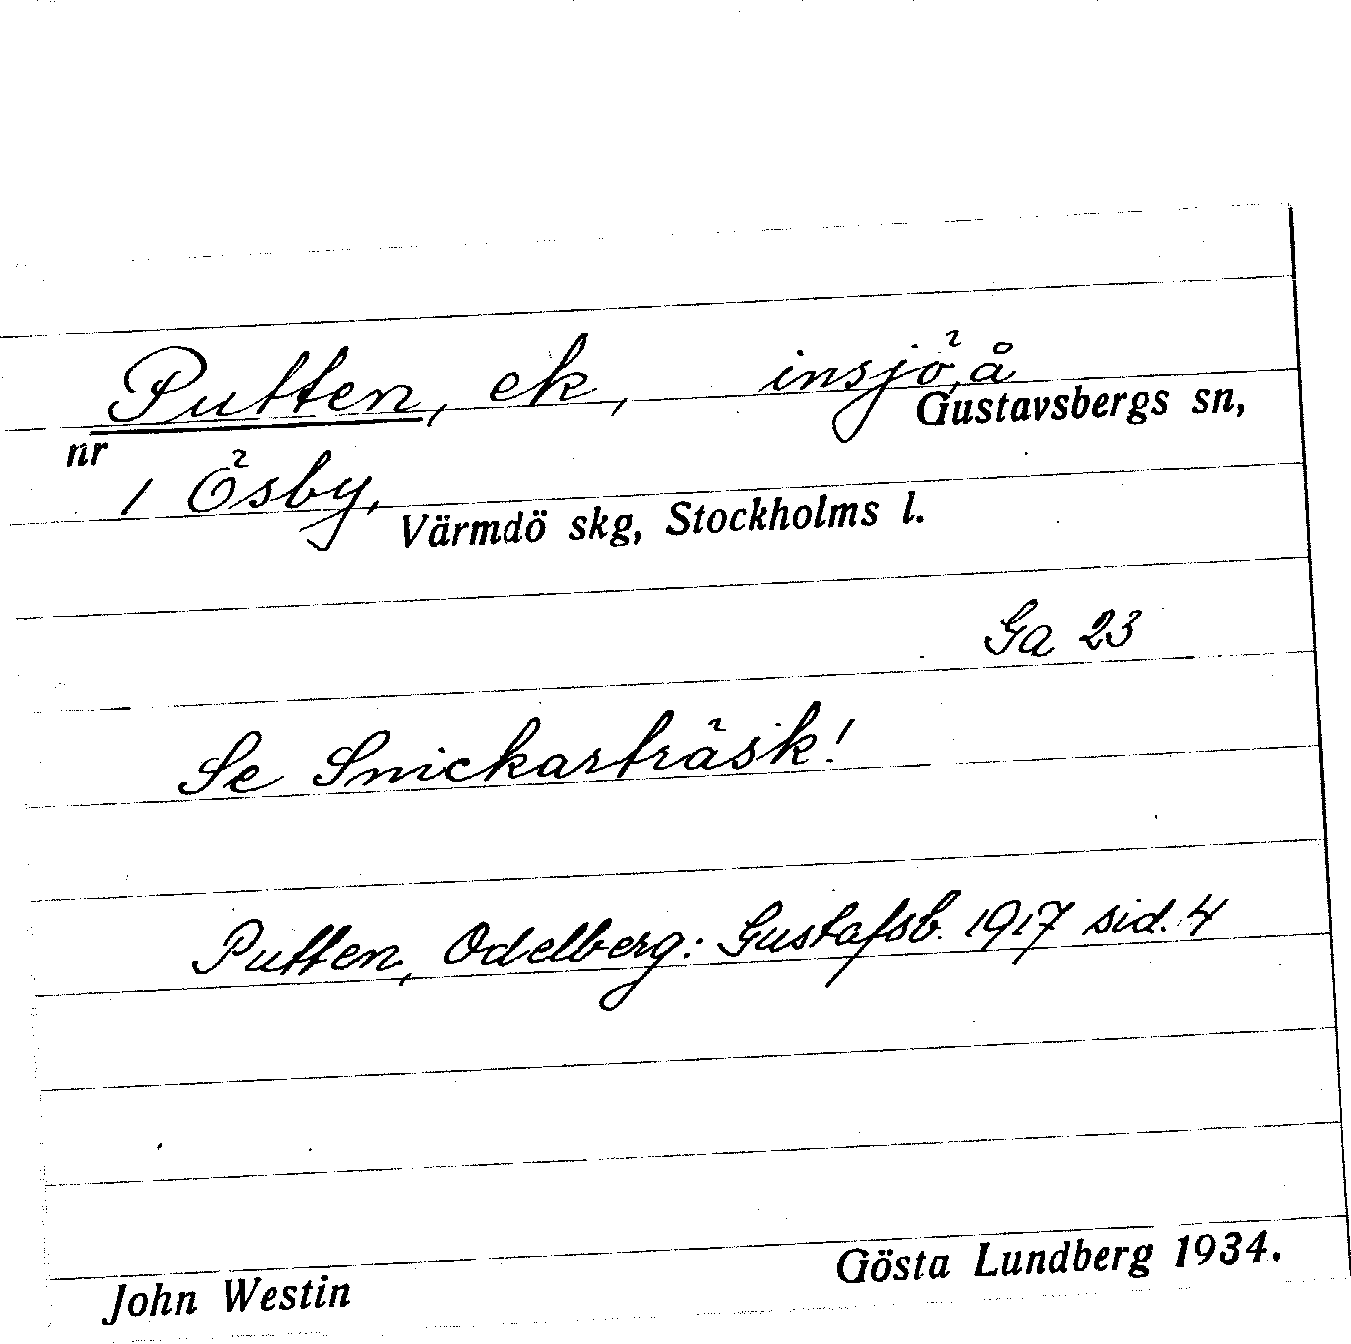 Putten, ek, insjö, å
Gustavsbergs sn,
nr 1 Ösby,
Värmdö skg, Stockholms l.
Ga 23
Se Snickarträsk!
Putten, Odelberg: Gustafsb. 1917 sid. 4
John Westin Gösta Lundberg 1934.